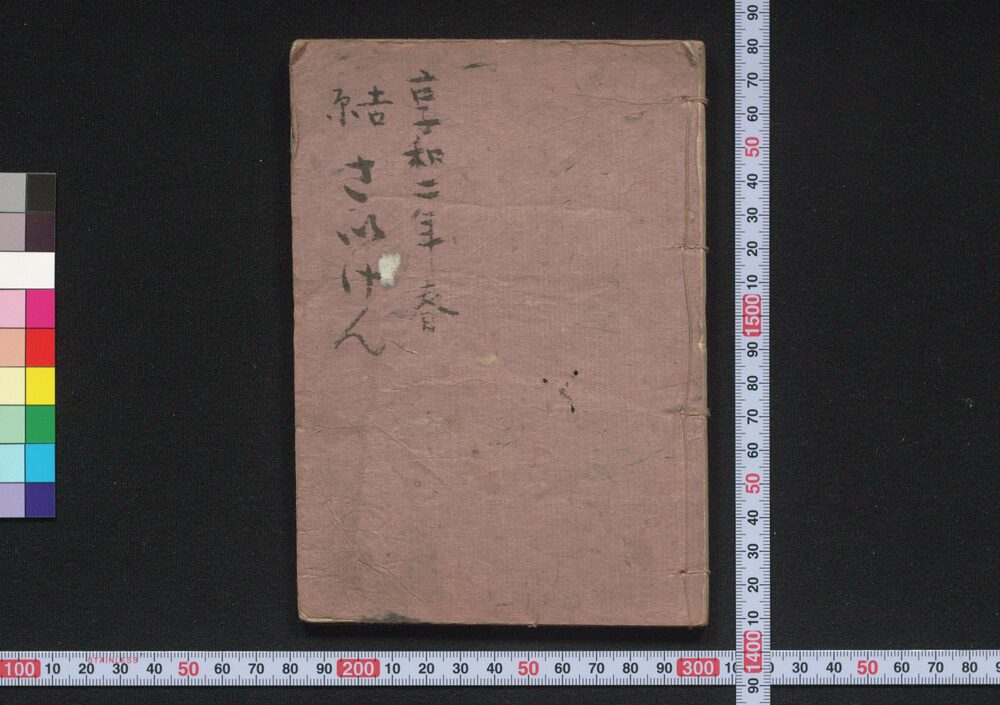 享和二年春
吉原さいけん
90 80 70 60 50 40 30 20 10 1500 90 80 70 60 50 40 30 20 10 1400 90
100 10 20 30 40 50 60 70 80 90 200 10 20 30 40 50 60 70 80 90 300 10 30 40 50 60 70 80
STAINLESS